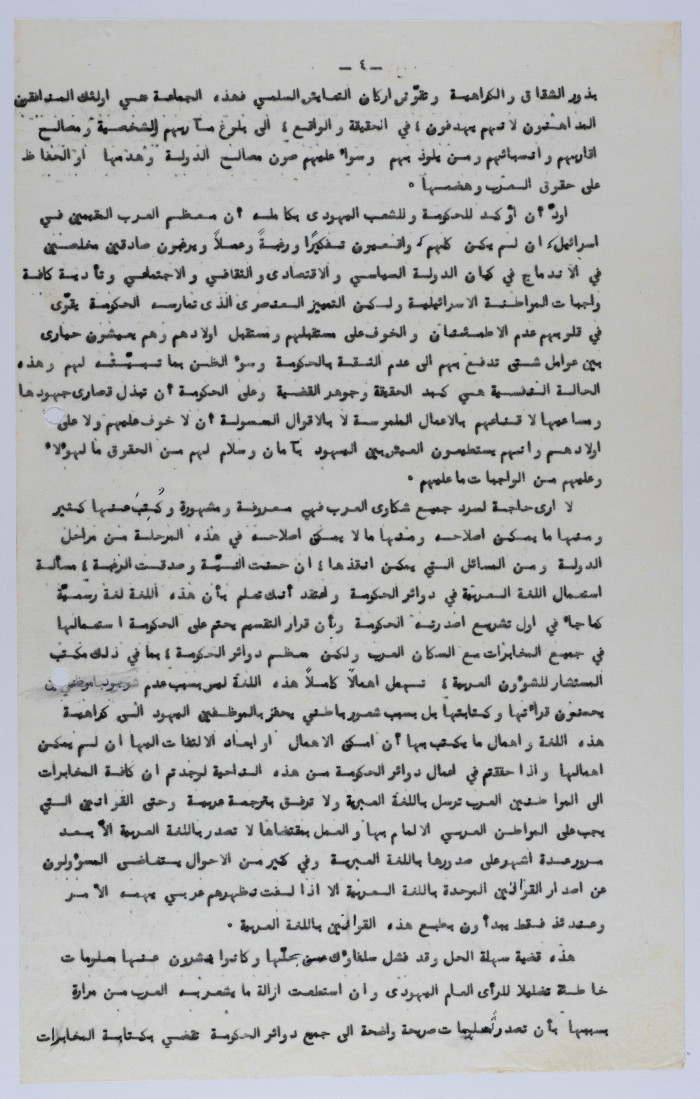 — ٤ —
بذور الشقاق والكراهية وتقوّض اركان التعايش السلمي فهذه الجماعة هي اولئك المنافقين
المداهنون لانهم يهدفون ، في الحقيقة والواقع ، الى بلوغ مآربهم الشخصية ومصالح
اقاربهم وانسبائهم ومن يلوذ بهم وسواء عليهم صون مصالح الدولة وهدمها او الحفاظ
على حقوق العرب وهضمها .
اودّ أن اؤكد للحكومة وللشعب اليهودى بكامله أن معظم العرب المقيمين في
اسرائيل، ان لم يكن كلهم، واقعيون تفكيرًا ورغبةً وعملاً ويرغبون صادقين مخلصين
في الاندماج في كيان الدولة السياسي والاقتصادى والثقافي والاجتماعي وتأدية كافة
واجبات المواطنة الاسرائيلية ولكن التمييز العنصرى الذى تمارسه الحكومة يقوّى
في قلوبهم عدم الاطمئنان والخوف على مستقبلهم ومستقبل اولادهم وهم يعيشون حيارى
بين عوامل شتى تدفع بهم الى عدم الثقة بالحكومة وسوء الظن بما تبيّته لهم وهذه
الحالة النفسية هي كبد الحقيقة وجوهر القضية وعلى الحكومة أن تبذل قصارى جهودها
ومساعيها لاقناعهم بالاعمال الملموسة لا بالاقوال المعسولة أن لا خوف عليهم ولا على
اولادهم وانهم يستطيعون العيش بين اليهود بآمان وسلام لهم من الحقوق ما لهوءلاء
وعليهم من الواجبات ما عليهم .
لا ارى حاجة لسرد جميع شكاوى العرب فهي معروفة ومشهورة وكُتِبَ عنها كثير
ومنها ما يمكن اصلاحه ومنها ما لا يمكن اصلاحه في هذه المرحلة من مراحل
الدولة ومن المسائل التي يمكن انقذها ، ان حسنت النيّة وصدقت الرغبة ، مسألة
استعمال اللغة العربيّة في دوائر الحكومة واعتقد أنك تعلم بأن هذه اللغة لغة رسميّة
كما جاء في اول تشريع اصدرته الحكومة وأن قرار التقسيم يحتم على الحكومة استعمالها
في جميع المخابرات مع السكان العرب ولكن معظم دوائر الحكومة ، بما في ذلك مكتب
المستشار للشؤون العربية ، تهمل اهمالاً كاملاً هذه اللغة ليس بسبب عدم وجود موظفين
يحسنون قرائتها وكتابتها بل بسبب شعور باطني يحفز بالموظفين اليهود الى كراهية
هذه اللغة واهمال ما يكتب بها أن امكن الاهمال او ابعاد الالتفات اليها ان لم يمكن
اهمالها واذا حققتم في اعمال دوائر الحكومة من هذه الناحية لوجدتم ان كافة المخابرات
الى المواطنين العرب ترسل باللغة العبرية ولا ترفق بترجمة عربية وحتى القوانين التي
يجب على المواطن العربي الالمام بها والعمل بمقتضاها لا تصدر باللغة العربية الاّ بعد
مرور عدة اشهر على صدورها باللغة العبرية وفي كير من الاحوال يتغاضى المسؤولون
عن اصدار القوانين الموحدة باللغة العربية الا اذا لفت نظرهم عربي يهمه الأمر
وعندئذ فقط يبدأون بطبع هذه القوانين باللغة العربية .
هذه قضية سهلة الحل وقد فشل سلفاوك عن حلّها وكانوا ينشرون عنها معلومات
خاطئة تضليلا للرأى العام اليهودى وان استطعت ازالة ما يشعر به العرب من مرارة
بسببها بأن تصدر تعليمات صريحة واضحة الى جميع دوائر الحكومة تقضي بكتابة المخابرات